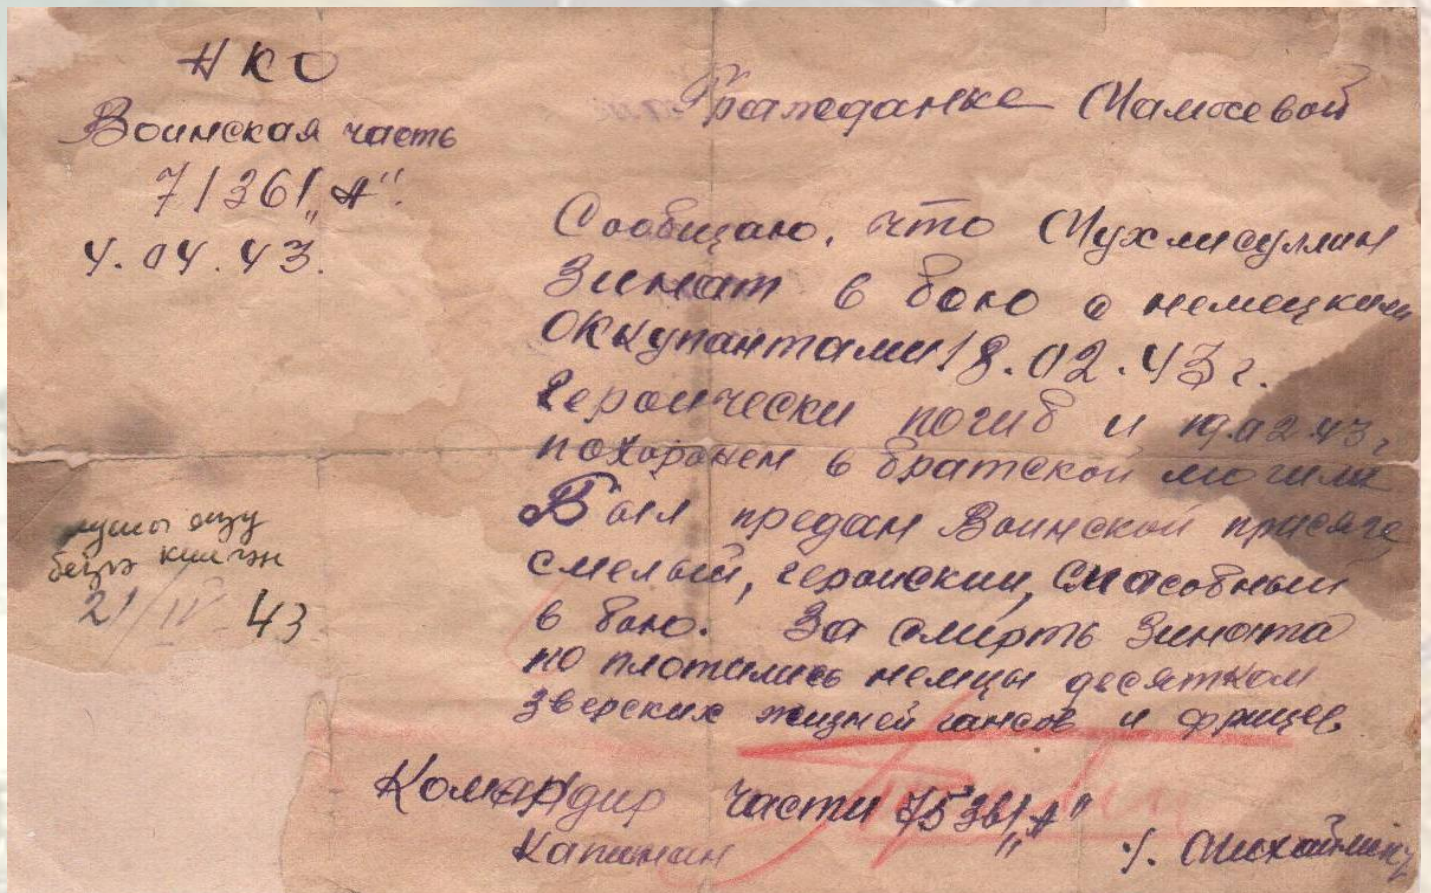 НКО
Воинская часть
71361 „А".
4.04.43.
Гражданке Мамаевой
Сообщаю, что Мухлисуллин
Зинат в бою с немецкими
оккупантами 18.02.43 г.
героически погиб и 19.02.43 г.
похоронен в братской могиле
Был предан Воинской присяге
смелый, геройский, способный
в бою. За смерть Зината
по плотились немцы десятком
зверских жизней гансов и фрицев.
безгә килгән
21/IV 43
Командир части 75361 „А"
Капитан